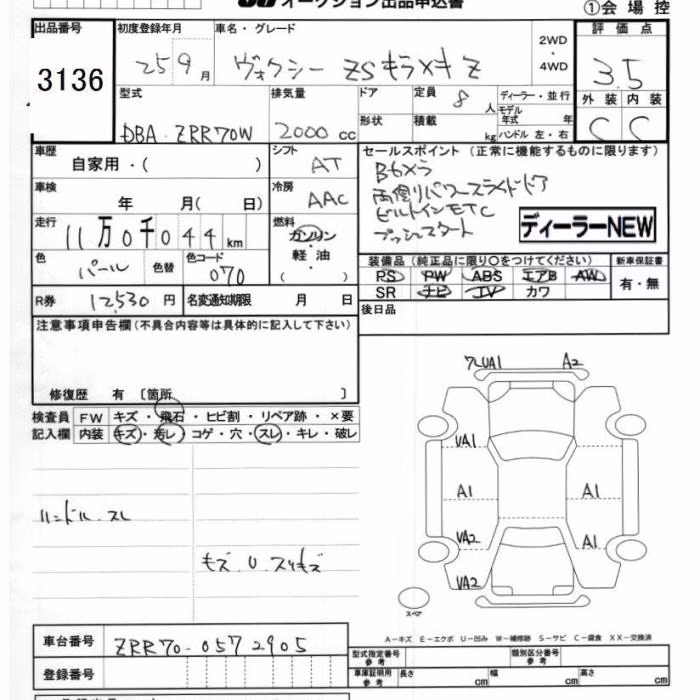 オークション出品申込書 ①会場控
出品番号 初度登録年月 車名・グレード 2WD・4WD 評価点
3136 25 9月 ヴォクシー ZSキラメキ Z 3.5
型式 排気量 ドア 定員 8人 ディーラー・並行 外装 内装
モデル年式 年
DBA-ZRR70W 2000cc 形状 積載 kg ハンドル 左・右 C C
車歴 自家用・( ) シフト AT セールスポイント(正常に機能するものに限ります)
Bカメラ
車検 年 月( 日) 冷房 AAC 両側パワースライドドア
ビルトインETC
走行 11万0千044km 燃料 ガソリン・軽油・( ) プッシュスタート
ディーラーNEW
色 パール 色替 色コード 070
装備品(純正品に限り○をつけてください) 新車保証書
PS PW ABS エアB AW 有・無
SR ナビ TV カワ
R券 12530円 名変通知期限 月 日 後日品
注意事項申告欄(不具合内容等は具体的に記入して下さい)
修復歴 有 〔箇所 〕
検査員 FW キズ・飛石・ヒビ割・リペア跡・×要
記入欄 内装 キズ・汚レ・コゲ・穴・スレ・キレ・破レ
ハンドル スレ
キズ U スリキズ
フLUA1 A2
UA1
A1 A1
UA2 A1
UA2
スペア
A-キズ E-エクボ U-凹み W-補修跡 S-サビ C-腐食 XX-交換済
車台番号 ZRR70-0572905
型式指定番号 参考 類別区分番号 参考
登録番号 車庫証明用 参考 長さ cm 幅 cm 高さ cm